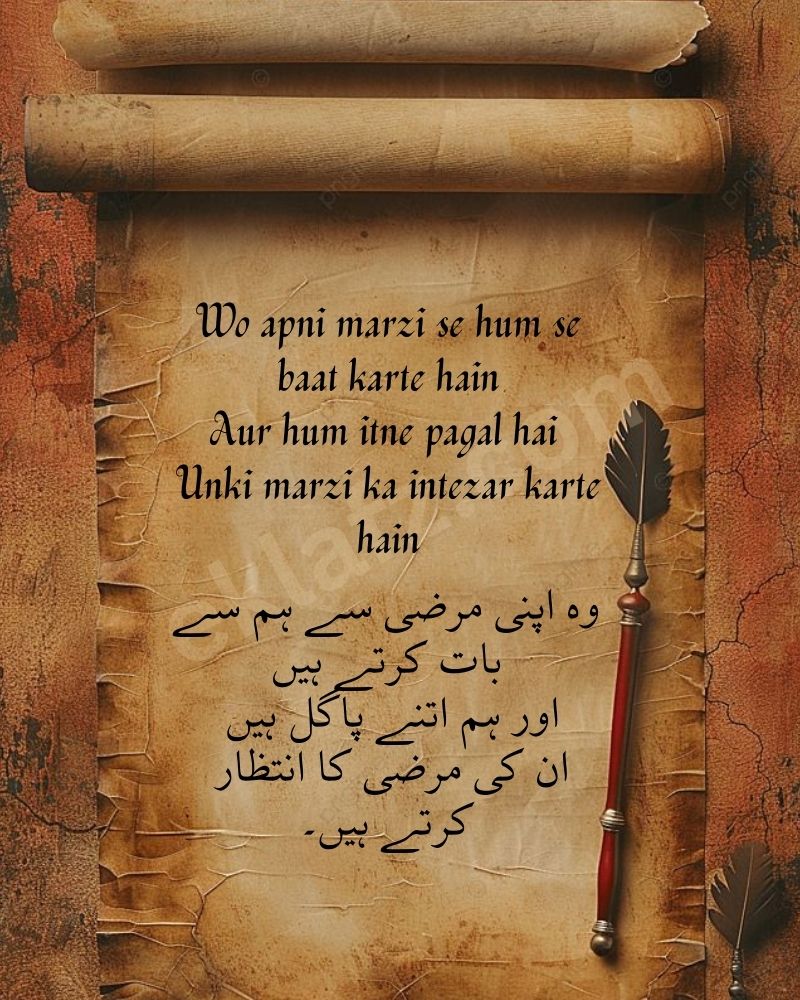 Wo apni marzi se hum se
baat karte hain
Aur hum itne pagal hai
Unki marzi ka intezar karte
hain
وہ اپنی مرضی سے ہم سے
بات کرتے ہیں
اور ہم اتنے پاگل ہیں
ان کی مرضی کا انتظار
کرتے ہیں۔